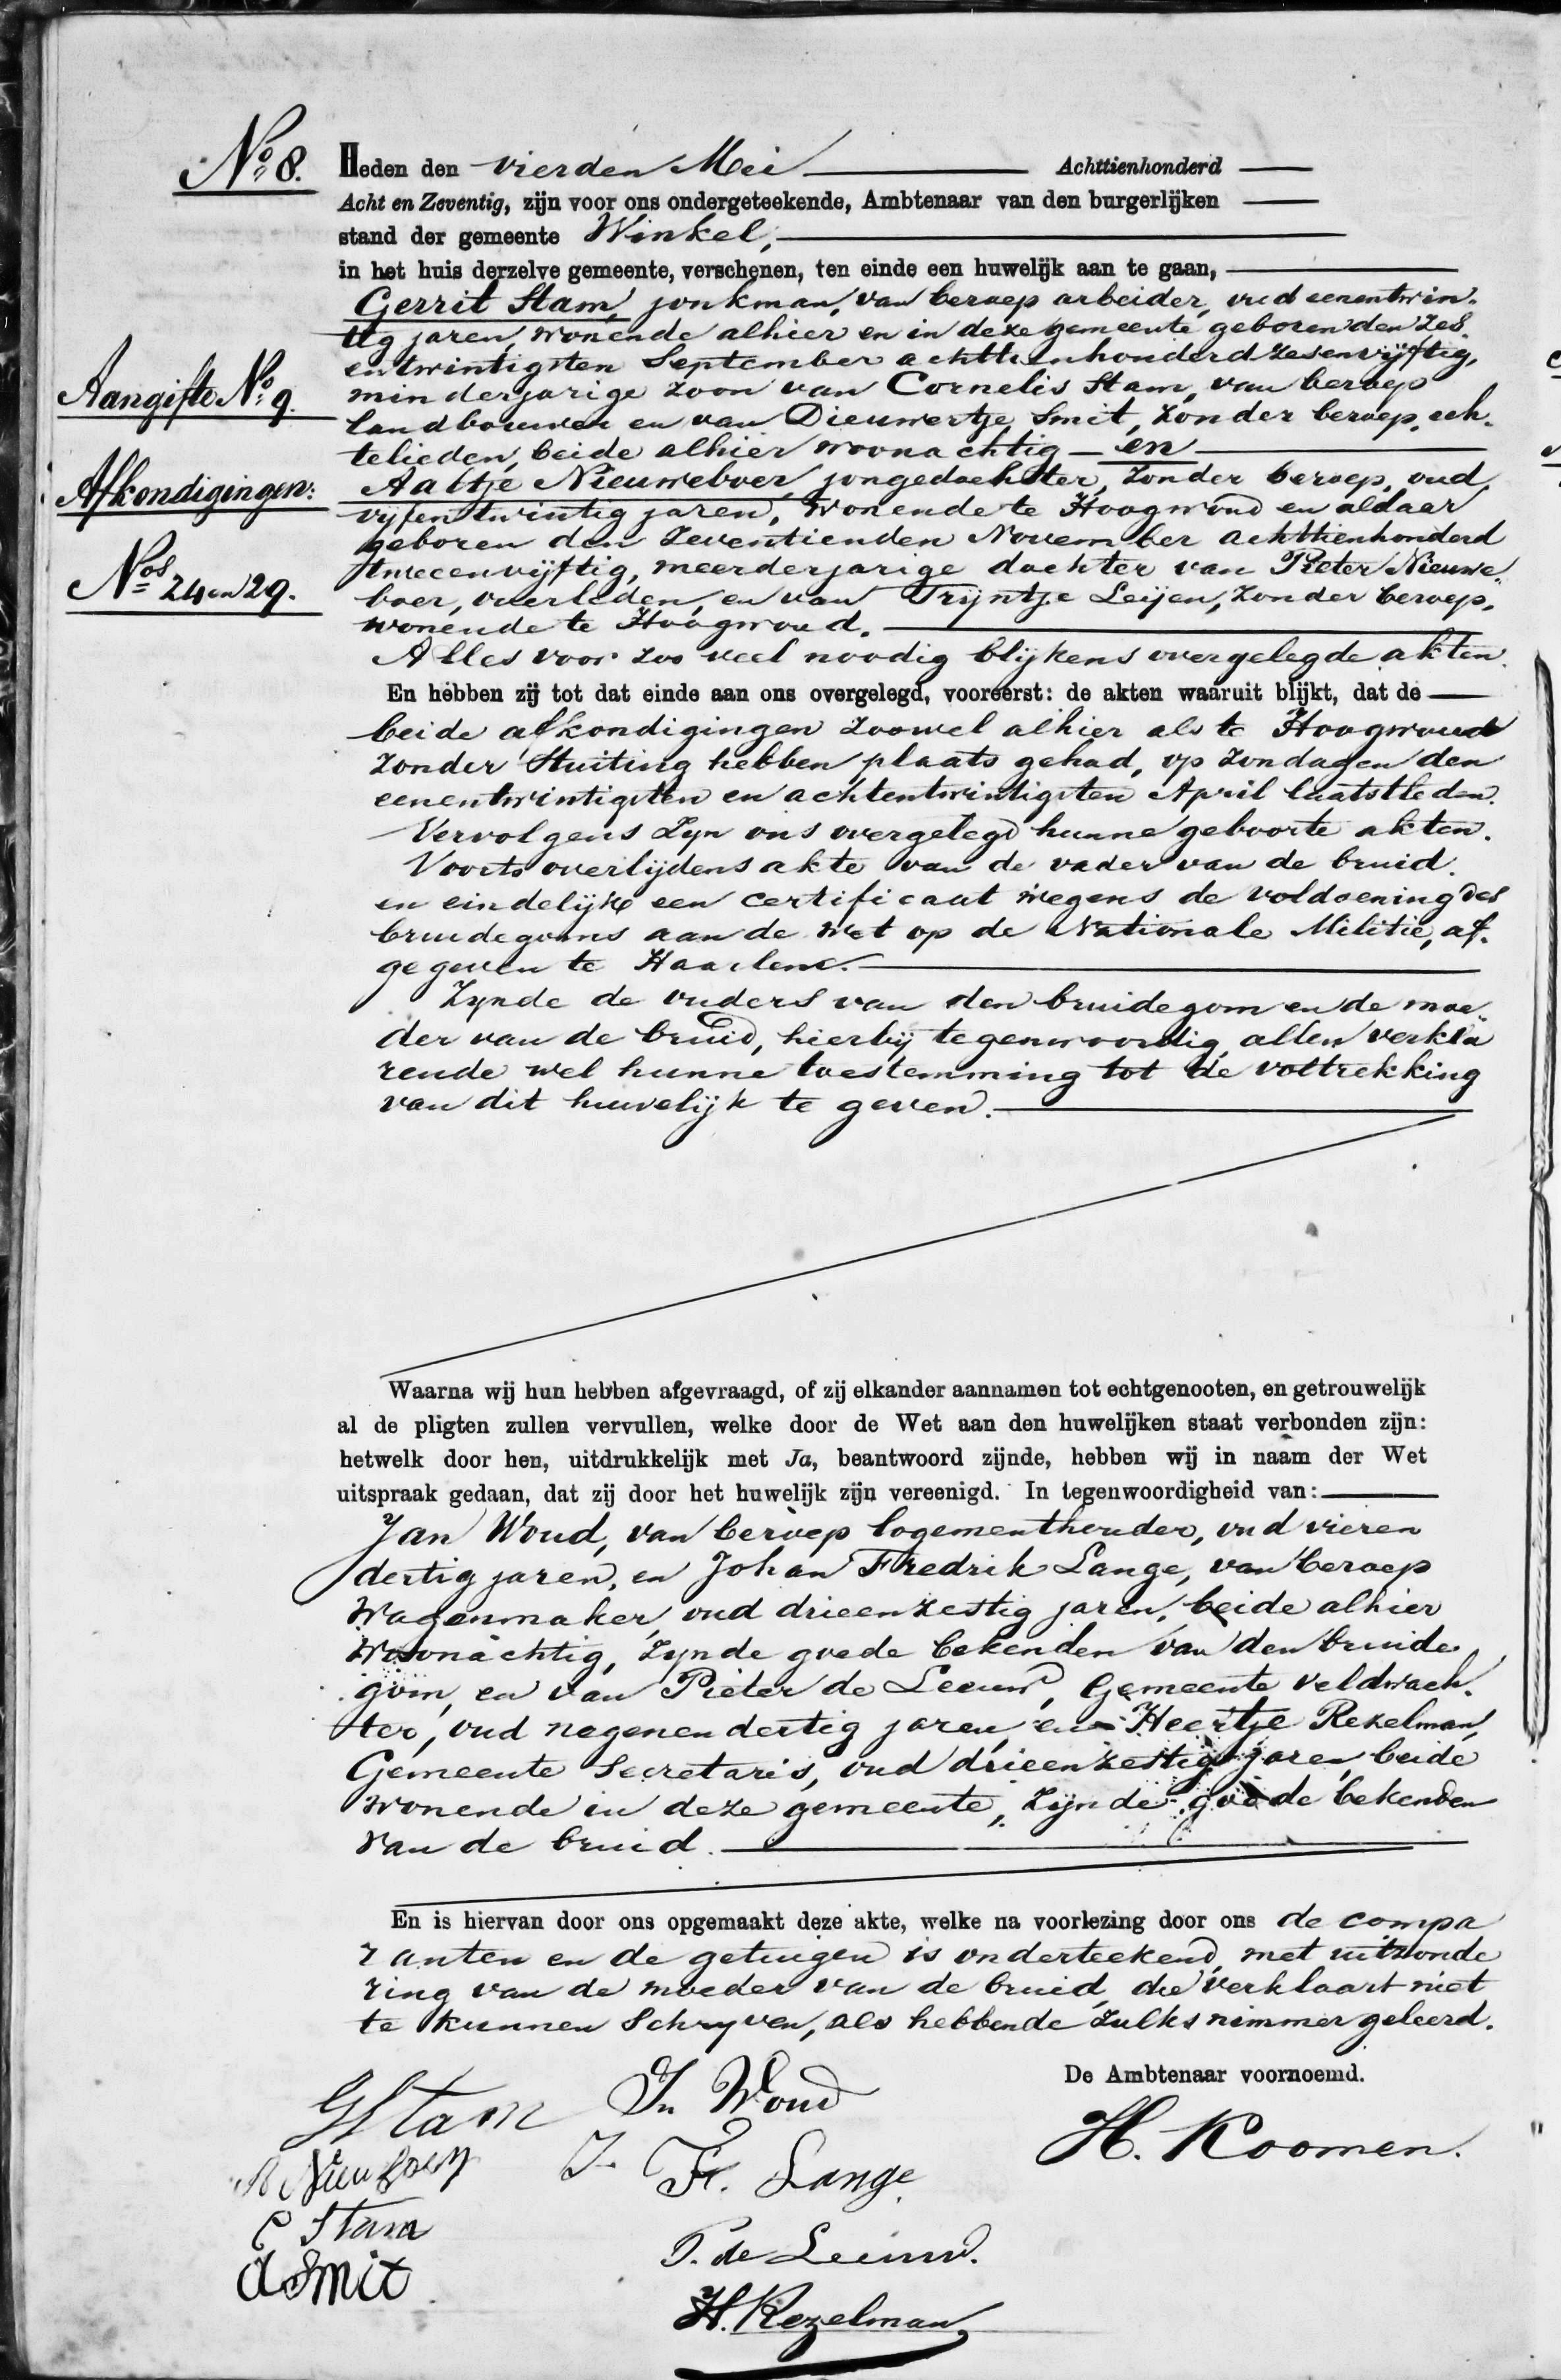 No 8.
Heden den vierden Mei Achttienhonderd
Acht en Zeventig, zijn voor ons ondergeteekende, Ambtenaar van den burgerlijken
stand der gemeente Winkel,
in het huis derzelve gemeente, verschenen, ten einde een huwelijk aan te gaan,
Gerrit Stam, jonkman, van beroep arbeider, oud eenentwin-
tig jaren, wonende alhier en in deze gemeente geboren den zes
entwintigsten September achttienhonderd zesenvijftig,
minderjarige zoon van Cornelis Stam, van beroep
landbouwer en van Dieuwertje Smit, zonder beroep, ech-
telieden, beide alhier woonachtig – en
Aaltje Nieuweboer jongedochter, zonder beroep, oud
vijfentwintig jaren, wonende te Hoogwoud en aldaar
geboren den Zeventienden November achttienhonderd
tweeenvijftig, meerderjarige dochter van Pieter Nieuwe-
boer, overleden, en van Trijntje Leijen, zonder beroep,
wonende te Hoogwoud.
Alles voor zoo veel noodig blijkens overgelegde akten.
En hebben zij tot dat einde aan ons overgelegd, vooreerst: de akten waaruit blijkt, dat de
beide afkondigingen zoowel alhier als te Hoogwoud
zonder stuiting hebben plaats gehad, op zondagen den
eenentwintigsten en achtentwintigsten April laatstleden.
Vervolgens zyn ons overgelegd hunne geboorte akten.
Voorts overlijdens akte van de vader van de bruid.
en eindelijk een certificaat wegens de voldoening des
bruidegoms aan de wet op de Nationale Militie, af-
gegeven te Haarlem.
Zynde de ouders van den bruidegom en de moe-
der van de bruid, hierbij tegenwoordig allen verkla
rende wel hunne toestemming tot de voltrekking
van dit huwelijk te geven.
Aangifte No 9.
Afkondigingen:
Nos 24 en 29.
Waarna wij hun hebben afgevraagd, of zij elkander aannamen tot echtgenooten, en getrouwelijk
al de pligten zullen vervullen, welke door de Wet aan den huwelijken staat verbonden zijn:
hetwelk door hen, uitdrukkelijk met Ja, beantwoord zijnde, hebben wij in naam der Wet
uitspraak gedaan, dat zij door het huwelijk zijn vereenigd. In tegenwoordigheid van:
Jan Woud, van beroep logementhouder, oud vieren
dertig jaren, en Johan Fredrik Lange, van beroep
Wagenmaker, oud drieenzestig jaren, beide alhier
Woonachtig, zynde goede bekenden van den bruide-
gom, en van Pieter de Leeuw, Gemeente veldwach-
ter, oud negenendertig jaren, en Heertje Rezelman,
Gemeente Secretaris, oud drieenzestig jaren, beide
wonende in deze gemeente, zijnde goede bekenden
van de bruid.
En is hiervan door ons opgemaakt deze akte, welke na voorlezing door ons de compa
ranten en de getuigen is onderteekend, met uitzonde
ring van de moeder van de bruid, die verklaart niet
te kunnen schryven, als hebbende zulks nimmer geleerd.
De Ambtenaar voornoemd.
H. Koomen.
G Stam
A Nieuboer
C Stam
d Smit
Jn Woud
J. Fr. Lange
P. de Leeuw.
H. Rezelman